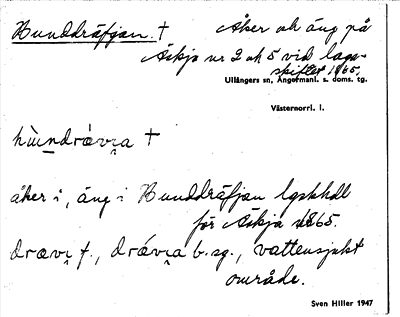 Hunddräfjan. † Åker och äng på
Äskja nr 2 och 5 vid laga-
skiftet 1865.
Ullångers sn, Ångermanl. s. doms. tg.
Västernorrl. l.
hùndrávi̯a †
åker i, äng i Hunddräfjan lgskhdl
för Äskja 1865.
dravi̯ f., drávi̯a b. sg., vattensjukt
område.
Sven Hiller 1947